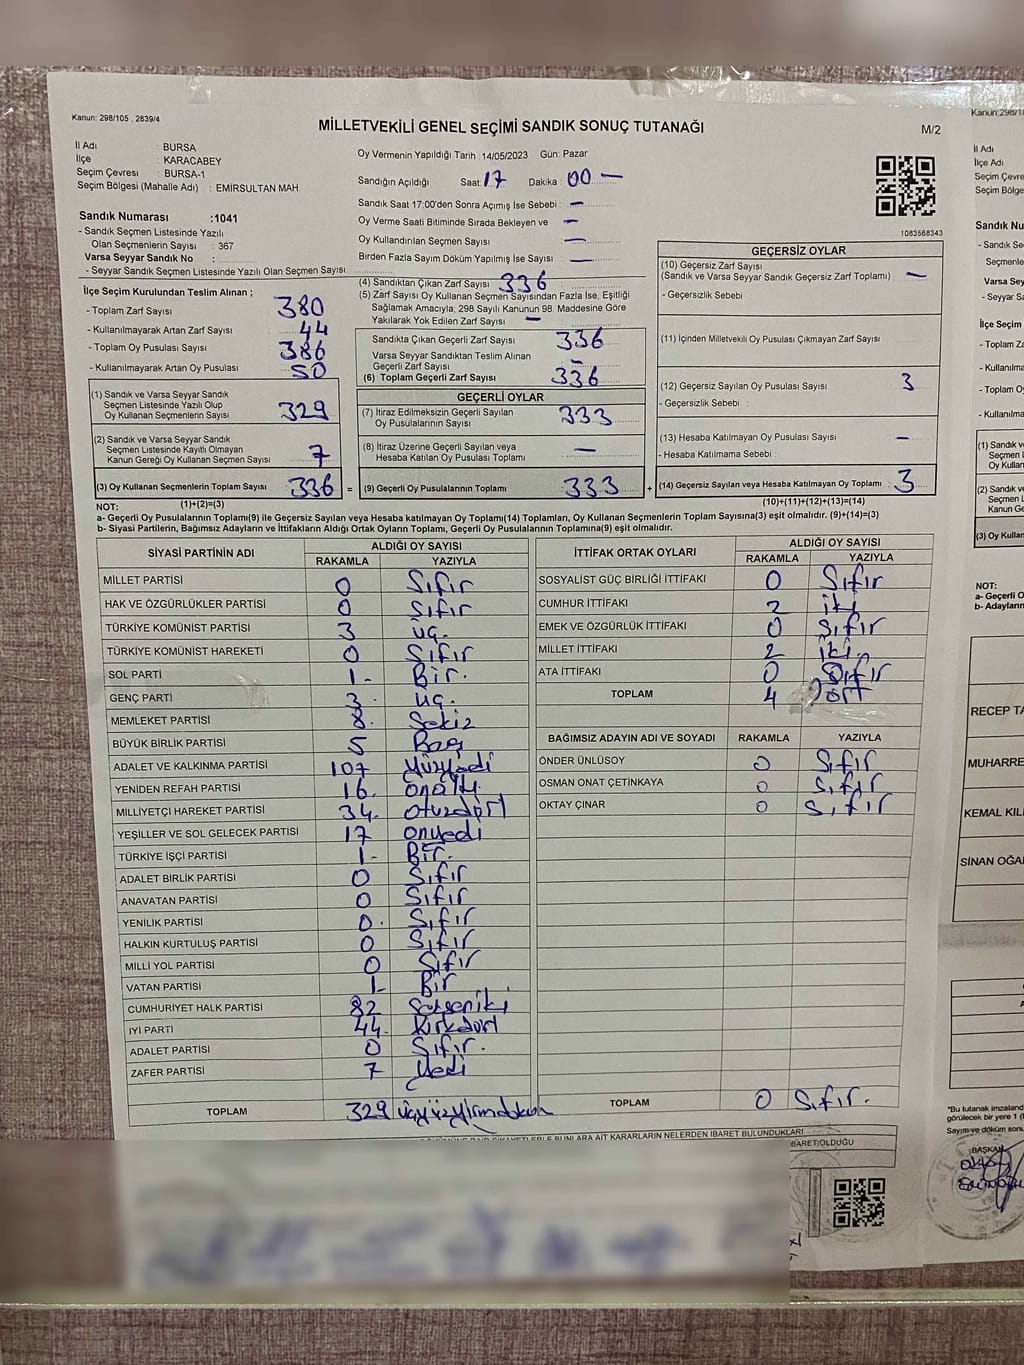 Kanun: 298/105 , 2839/4
MİLLETVEKİLİ GENEL SEÇİMİ SANDIK SONUÇ TUTANAĞI
M/2
İl Adı : BURSA
İlçe : KARACABEY
Seçim Çevresi : BURSA-1
Seçim Bölgesi (Mahalle Adı) : EMİRSULTAN MAH.
Sandık Numarası :1041
- Sandık Seçmen Listesinde Yazılı
Olan Seçmenlerin Sayısı : 367
Varsa Seyyar Sandık No :
- Seyyar Sandık Seçmen Listesinde Yazılı Olan Seçmen Sayısı.
Oy Vermenin Yapıldığı Tarih : 14/05/2023 Gün: Pazar
Sandığın Açıldığı Saat: 17 Dakika : 00 —
Sandık Saat 17:00'den Sonra Açımış İse Sebebi : —
Oy Verme Saati Bitiminde Sırada Bekleyen ve —
Oy Kullandırılan Seçmen Sayısı —
Birden Fazla Sayım Döküm Yapılmış İse Sayısı —
1083568343
İlçe Seçim Kurulundan Teslim Alınan ;
- Toplam Zarf Sayısı 380
- Kullanılmayarak Artan Zarf Sayısı 44
- Toplam Oy Pusulası Sayısı 386
- Kullanılmayarak Artan Oy Pusulası 50
(1) Sandık ve Varsa Seyyar Sandık
Seçmen Listesinde Yazılı Olup
Oy Kullanan Seçmenlerin Sayısı 329
(2) Sandık ve Varsa Seyyar Sandık
Seçmen Listesinde Kayıtlı Olmayan
Kanun Gereği Oy Kullanan Seçmen Sayısı 7
(3) Oy Kullanan Seçmenlerin Toplam Sayısı 336 =
(4) Sandıktan Çıkan Zarf Sayısı 336
(5) Zarf Sayısı Oy Kullanan Seçmen Sayısından Fazla İse, Eşitliği
Sağlamak Amacıyla; 298 Sayılı Kanunun 98. Maddesine Göre
Yakılarak Yok Edilen Zarf Sayısı —
Sandıkta Çıkan Geçerli Zarf Sayısı 336
Varsa Seyyar Sandıktan Teslim Alınan
Geçerli Zarf Sayısı —
(6) Toplam Geçerli Zarf Sayısı 336
GEÇERLİ OYLAR
(7) İtiraz Edilmeksizin Geçerli Sayılan
Oy Pusulalarının Sayısı 333
(8) İtiraz Üzerine Geçerli Sayılan veya
Hesaba Katılan Oy Pusulası Toplamı —
(9) Geçerli Oy Pusulalarının Toplamı 333 +
GEÇERSİZ OYLAR
(10) Geçersiz Zarf Sayısı
(Sandık ve Varsa Seyyar Sandık Geçersiz Zarf Toplamı) —
- Geçersizlik Sebebi
(11) İçinden Milletvekili Oy Pusulası Çıkmayan Zarf Sayısı
(12) Geçersiz Sayılan Oy Pusulası Sayısı 3
- Geçersizlik Sebebi :
(13) Hesaba Katılmayan Oy Pusulası Sayısı —
- Hesaba Katılmama Sebebi
(14) Geçersiz Sayılan veya Hesaba Katılmayan Oy Toplamı : 3
NOT: (1)+(2)=(3) (10)+(11)+(12)+(13)=(14)
a- Geçerli Oy Pusulalarının Toplamı(9) ile Geçersiz Sayılan veya Hesaba katılmayan Oy Toplamı(14) Toplamları, Oy Kullanan Seçmenlerin Toplam Sayısına(3) eşit olmalıdır. (9)+(14)=(3)
b- Siyasi Partilerin, Bağımsız Adayların ve İttifakların Aldığı Ortak Oyların Toplamı, Geçerli Oy Pusulalarının Toplamına(9) eşit olmalıdır.
SİYASİ PARTİNİN ADI ALDIĞI OY SAYISI
RAKAMLA YAZIYLA
MİLLET PARTİSİ 0 Sıfır
HAK VE ÖZGÜRLÜKLER PARTİSİ 0 Sıfır
TÜRKİYE KOMÜNİST PARTİSİ 3 üç.
TÜRKİYE KOMÜNİST HAREKETİ 0 Sıfır
SOL PARTİ 1- Bir.
GENÇ PARTİ 3 üç.
MEMLEKET PARTİSİ 8. Sekiz
BÜYÜK BİRLİK PARTİSİ 5 Beş
ADALET VE KALKINMA PARTİSİ 107 yüzyedi
YENİDEN REFAH PARTİSİ 16. onaltı
MİLLİYETÇİ HAREKET PARTİSİ 34. otuzdört
YEŞİLLER VE SOL GELECEK PARTİSİ 17 onyedi
TÜRKİYE İŞÇİ PARTİSİ 1- Bir.
ADALET BİRLİK PARTİSİ 0 Sıfır
ANAVATAN PARTİSİ 0 Sıfır
YENİLİK PARTİSİ 0. Sıfır
HALKIN KURTULUŞ PARTİSİ 0 Sıfır
MİLLİ YOL PARTİSİ 0 Sıfır
VATAN PARTİSİ 1- Bir
CUMHURİYET HALK PARTİSİ 82 Sekseniki
İYİ PARTİ 44. Kırkdört
ADALET PARTİSİ 0 Sıfır.
ZAFER PARTİSİ 7 yedi
TOPLAM 329 üçyüzyirmidokuz
İTTİFAK ORTAK OYLARI ALDIĞI OY SAYISI
RAKAMLA YAZIYLA
SOSYALİST GÜÇ BİRLİĞİ İTTİFAKI 0 Sıfır
CUMHUR İTTİFAKI 2 iki
EMEK VE ÖZGÜRLÜK İTTİFAKI 0 Sıfır
MİLLET İTTİFAKI 2 iki.
ATA İTTİFAKI 0 Sıfır
TOPLAM 4 Dört
BAĞIMSIZ ADAYIN ADI VE SOYADI RAKAMLA YAZIYLA
ÖNDER ÜNLÜSOY 0 Sıfır
OSMAN ONAT ÇETİNKAYA 0 Sıfır
OKTAY ÇINAR 0 Sıfır
TOPLAM 0 Sıfır.
BUNLARA AİT KARARLARIN NELERDEN İBARET BULUNDUKLARI
BARET OLDUĞU
Kanun:298/1
İl Adı
İlçe Adı
Seçim Çevre
Seçim Bölge
Sandık Nu
- Sandık Se
Seçmenle
Varsa Sey
- Seyyar Sa
İlçe Seçim
- Toplam Za
- Kullanılma
- Toplam O
- Kullanılma
(1) Sandık v
Seçmen L
Oy Kullan
(2) Sandık ve
Seçmen L
Kanun Ge
(3) Oy Kullan
NOT:
a- Geçerli O
b- Adayların
RECEP TA
MUHARRE
KEMAL KIL
SİNAN OĞA
*Bu tutanak imzaland
görülecek bir yere 1 (
Sayım ve döküm sonu
BAŞKAN